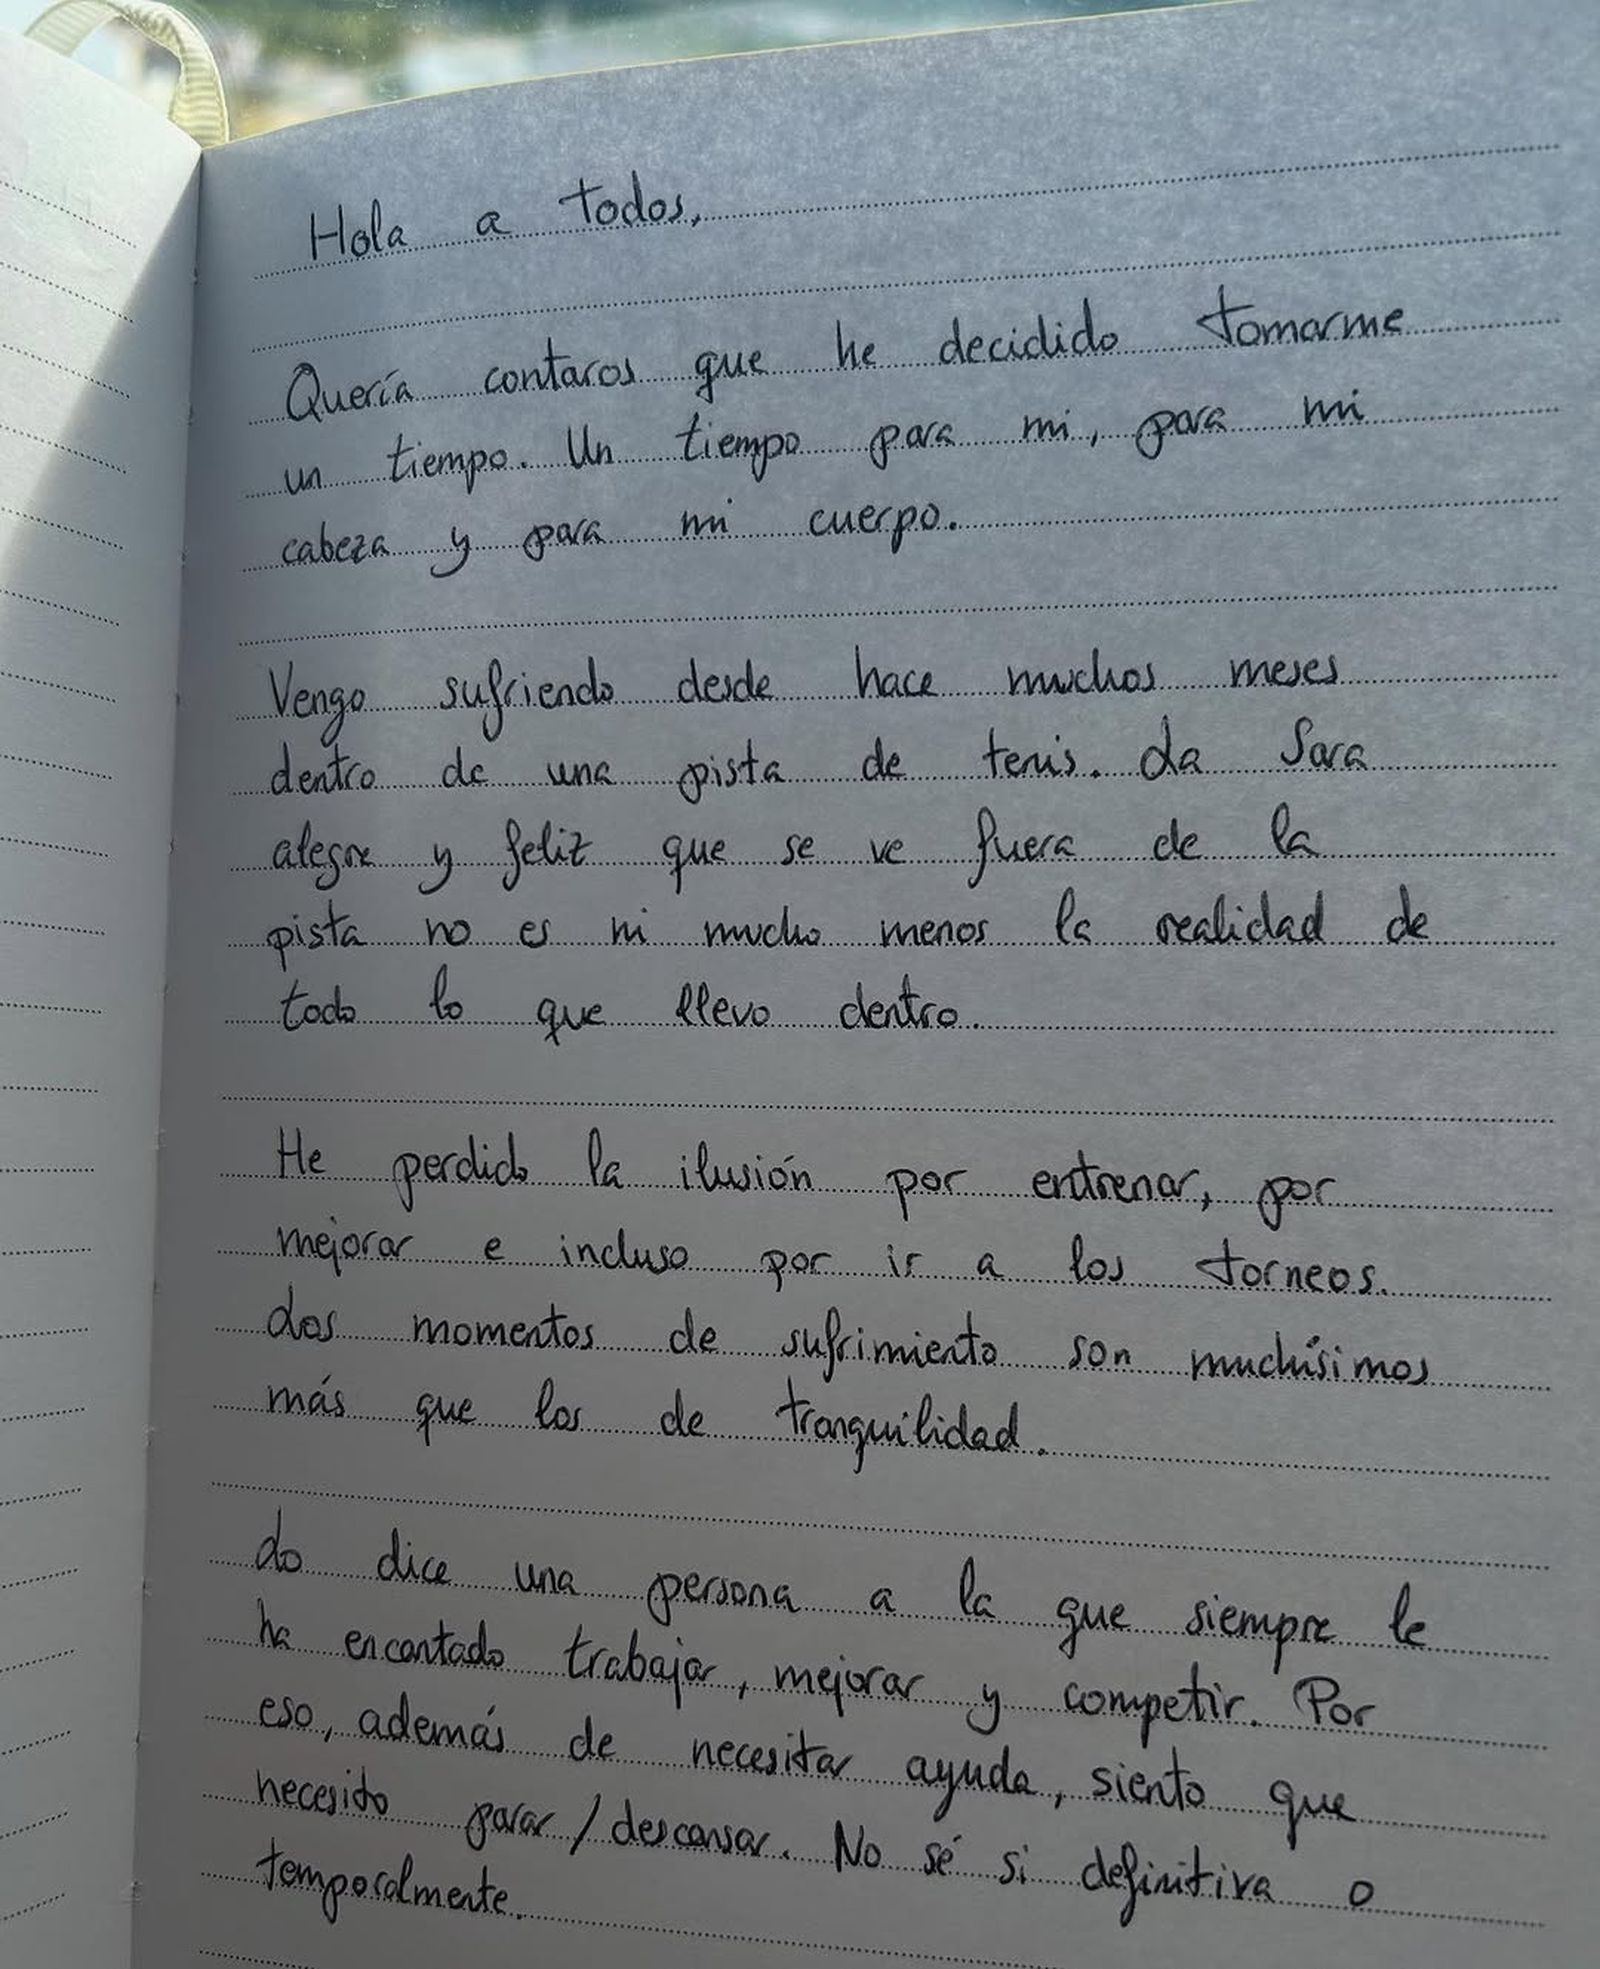 Hola a todos,
Quería contaros que he decidido tomarme
un tiempo. Un tiempo para mi, para mi
cabeza y para mi cuerpo.
Vengo sufriendo desde hace muchos meses
dentro de una pista de tenis. La Sara
alegre y feliz que se ve fuera de la
pista no es ni mucho menos la realidad de
todo lo que llevo dentro.
He perdido la ilusión por entrenar, por
mejorar e incluso por ir a los torneos.
Los momentos de sufrimiento son muchísimos
más que los de tranquilidad.
Lo dice una persona a la que siempre le
ha encantado trabajar, mejorar y competir. Por
eso, además de necesitar ayuda, siento que
necesito parar/descansar. No sé si definitiva o
temporalmente.